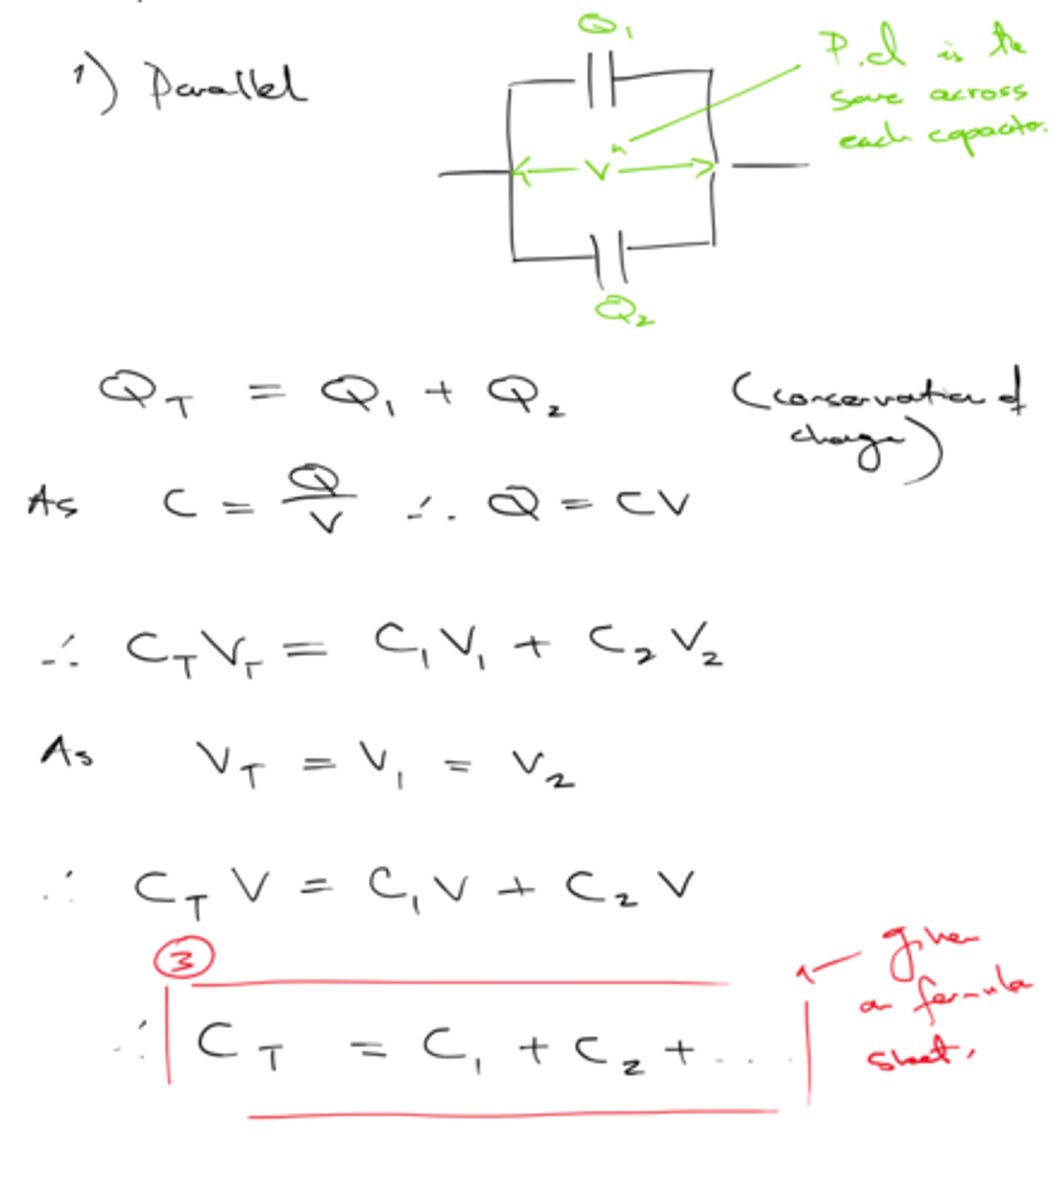 1) Parallel
Q₁
P.d is the
same across
each capacitor.
V
Q₂
Q_T = Q₁ + Q₂ (conservation of
charge)
As C = Q/V ∴ Q = CV
∴ C_T V_T = C₁V₁ + C₂V₂
As V_T = V₁ = V₂
∴ C_T V = C₁V + C₂V
③
given
on formula
sheet.
∴ C_T = C₁ + C₂ + ....